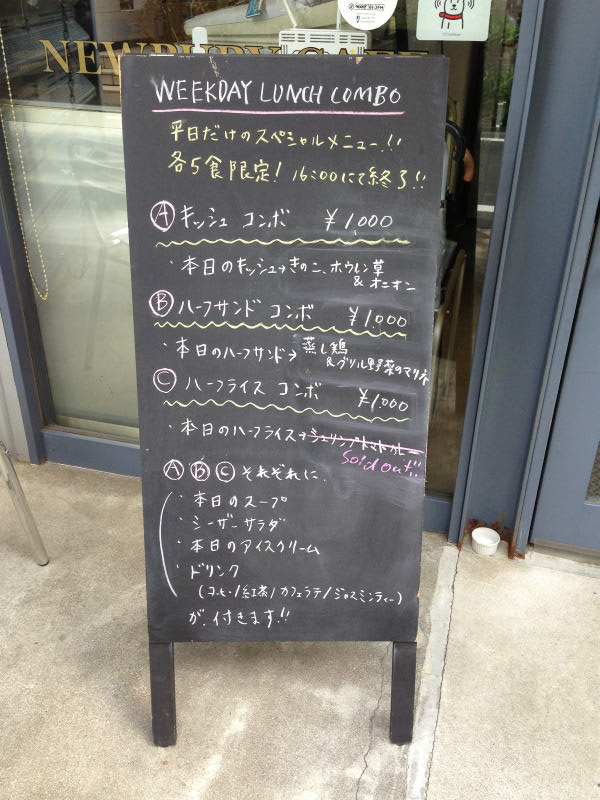 NEWBURY CAFE
WEEKDAY LUNCH COMBO
平日だけのスペシャルメニュー!!
各5食限定! 16:00にて終了!!
Ⓐ キッシュ コンボ ¥1,000
・本日のキッシュ→きのこ、ホウレン草
& オニオン
Ⓑ ハーフサンド コンボ ¥1,000
・本日のハーフサンド→蒸し鶏
& グリル野菜のマリネ
Ⓒ ハーフライス コンボ ¥1,000
・本日のハーフライス→シュリンプトマトカレー
Sold out!!
Ⓐ Ⓑ Ⓒ それぞれに、
・本日のスープ
・シーザーサラダ
・本日のアイスクリーム
・ドリンク
(コーヒー/紅茶/カフェラテ/ジャスミンティー)
が、付きます!!